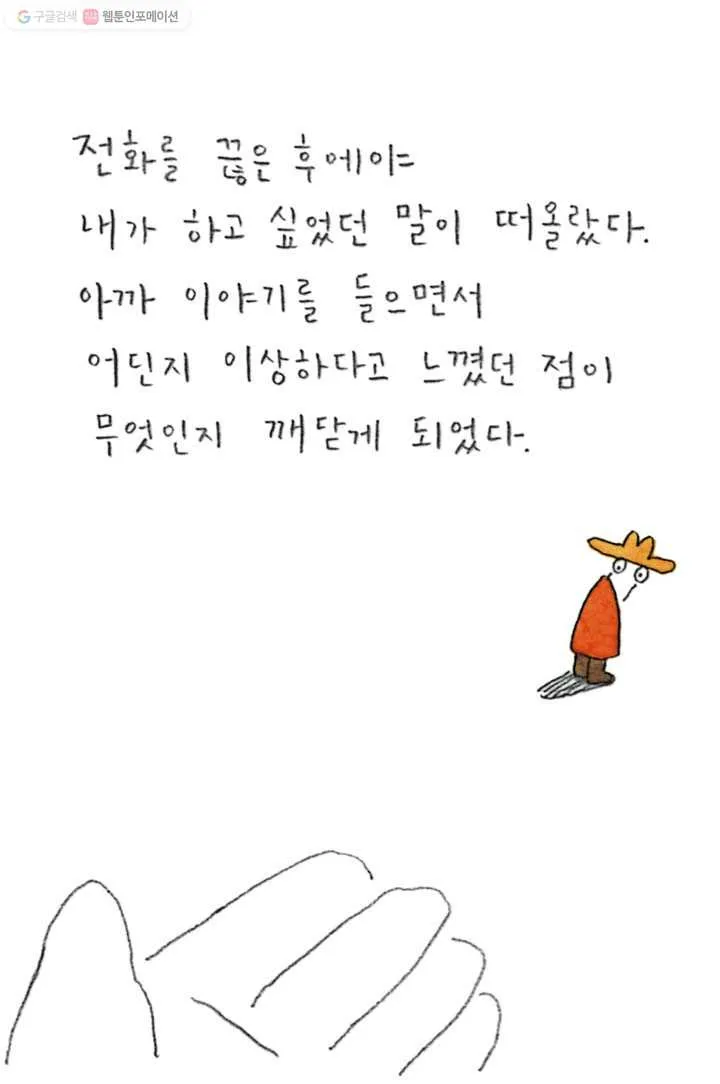 구글검색 웹툰인포메이션
전화를 끊은 후에야
내가 하고 싶었던 말이 떠올랐다.
아까 이야기를 들으면서
어딘지 이상하다고 느꼈던 점이
무엇인지 깨닫게 되었다.